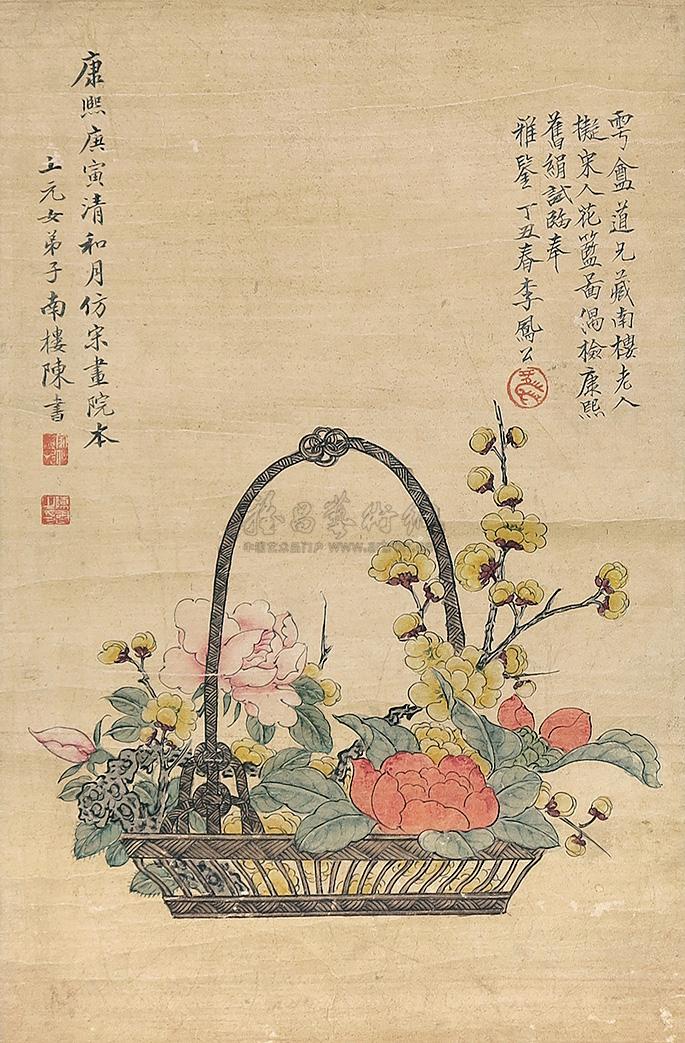 雩盦道兄藏南樓老人
擬宋人花籃啚偶檢康熙
舊絹試臨奉
雅鑒丁丑春李鳳公
康熙庚寅清和月仿宋畫院本
上元女弟子南樓陳書
雅昌藝術網